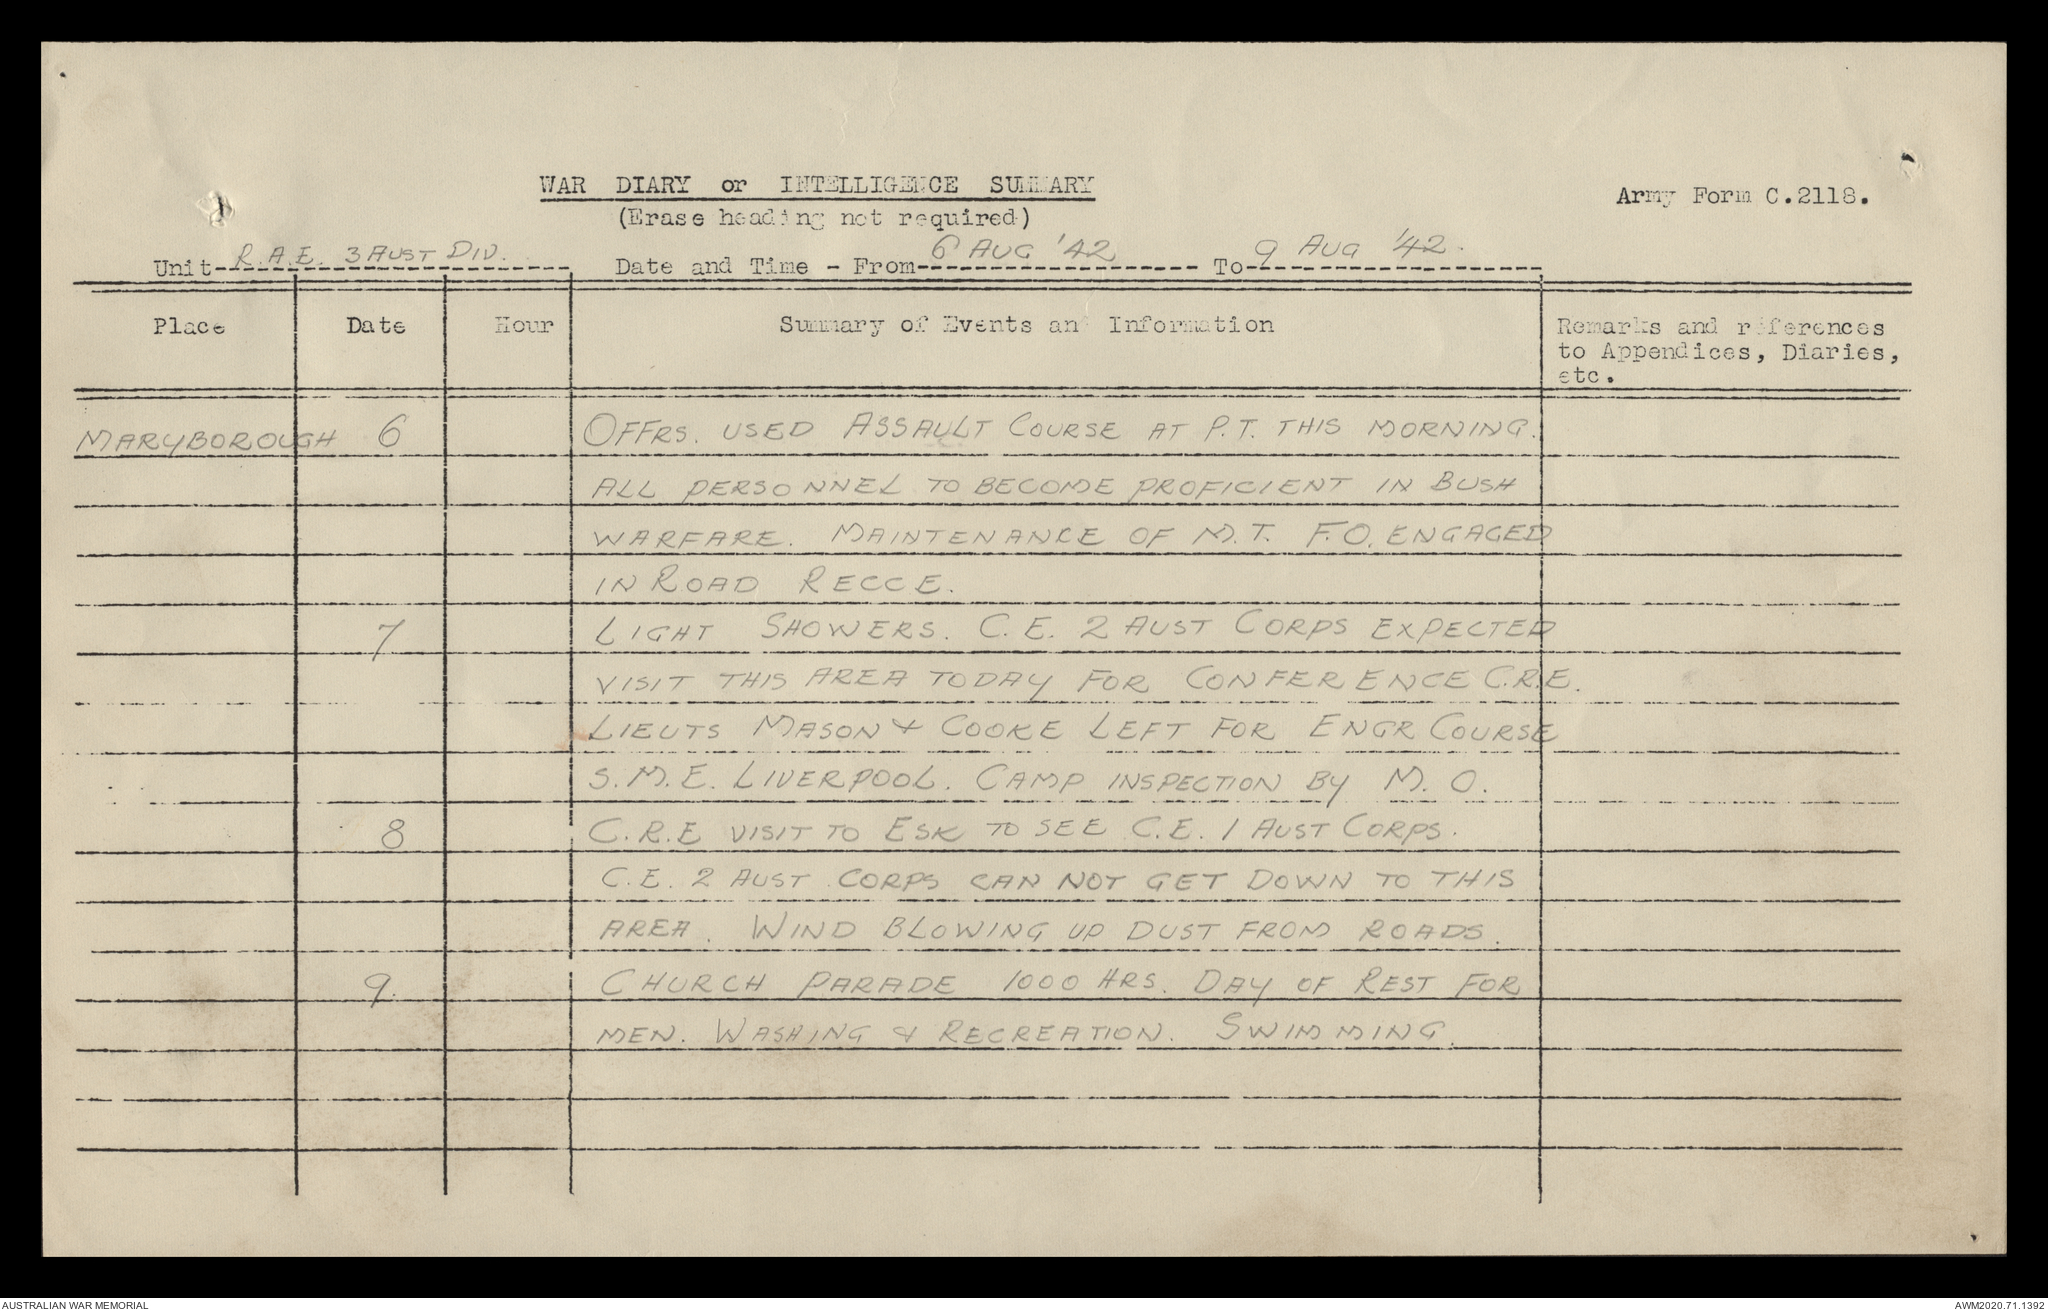 WAR DIARY or INTELLIGENCE SUMMARY
Army Form C.2118.
(Erase heading not required)
Unit R.A.E. 3 AUST DIV. Date and Time - From 6 AUG '42 To 9 AUG '42.
Place Date Hour Summary of Events and Information Remarks and references
to Appendices, Diaries,
etc.
MARYBOROUGH 6 OFFRS. USED ASSAULT COURSE AT P.T. THIS MORNING.
ALL PERSONNEL TO BECOME PROFICIENT IN BUSH
WARFARE. MAINTENANCE OF M.T. F.O. ENGAGED
IN ROAD RECCE.
7 LIGHT SHOWERS. C.E. 2 AUST CORPS EXPECTED
VISIT THIS AREA TODAY FOR CONFERENCE C.R.E.
LIEUTS MASON & COOKE LEFT FOR ENGR COURSE
S.M.E. LIVERPOOL. CAMP INSPECTION BY M.O.
8 C.R.E VISIT TO ESK TO SEE C.E. 1 AUST CORPS.
C.E. 2 AUST CORPS CAN NOT GET DOWN TO THIS
AREA. WIND BLOWING UP DUST FROM ROADS.
9. CHURCH PARADE 1000 HRS. DAY OF REST FOR
MEN. WASHING & RECREATION. SWIMMING.
AUSTRALIAN WAR MEMORIAL
AWM2020.71.1392